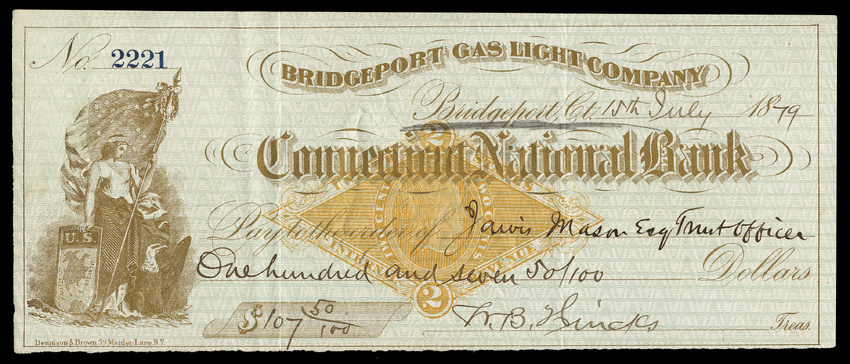 No. 2221
BRIDGEPORT GAS LIGHT COMPANY
Bridgeport, Ct. 15th July 1879
Connecticut National Bank
Pay to the order of Jarvis Mason Esq Trust Officer
One hundred and seven 50/100 Dollars
$107 50/100
W. B. Hincks Treas.
U.S.
2
Dennison & Brown 59 Maiden Lane, N.Y.